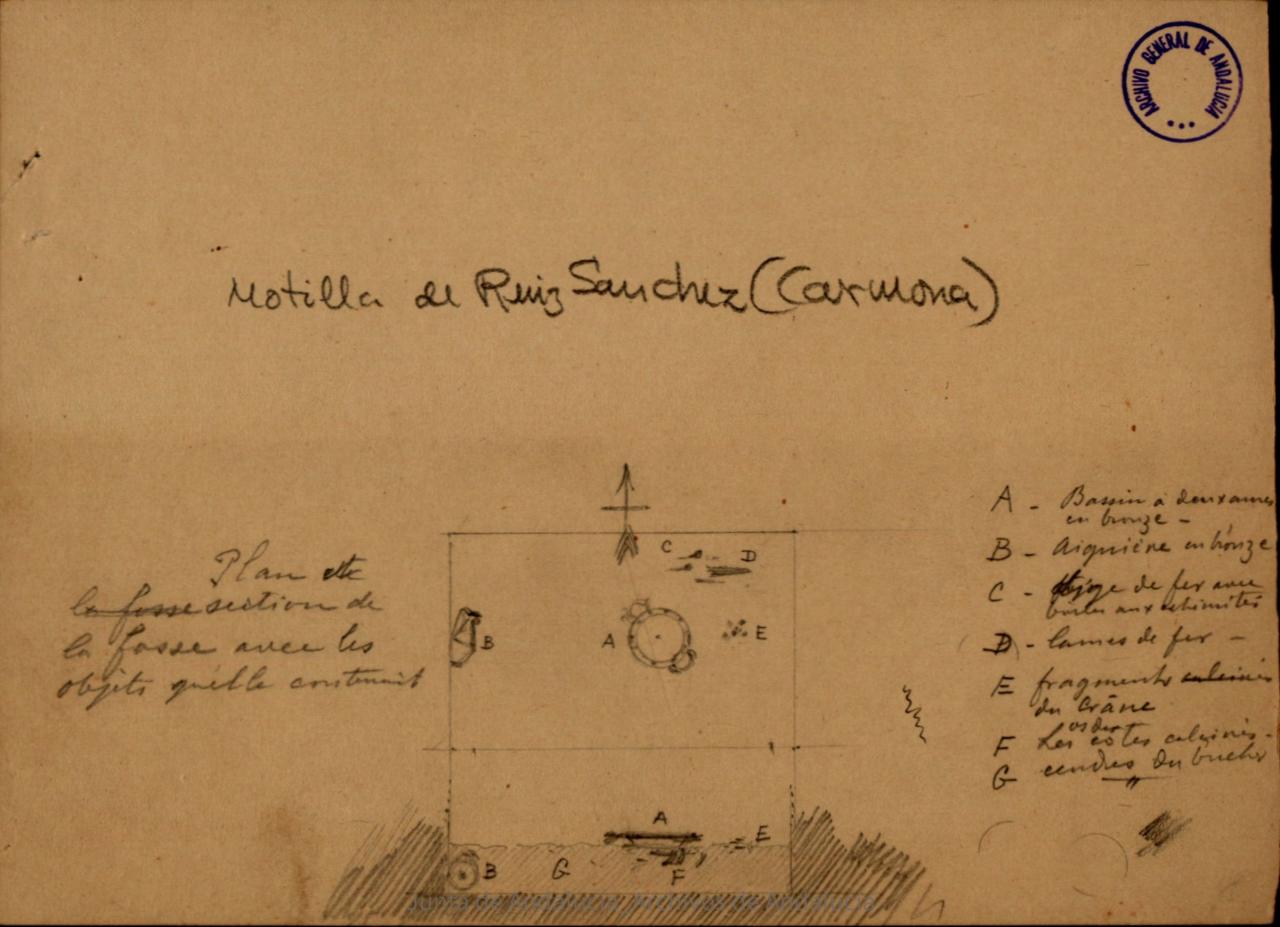 ARCHIVO GENERAL DE ANDALUCIA
Motilla de Ruiz Sanchez (Carmona)
Plan et
la fosse section de
la fosse avec les
objets qu'elle contenait
C D
B A E
A
E
B G F
A - Bassin à deux anses
en bronze -
B - Aiguière en bronze
C - tige de fer avec
aux extrémités
D - lames de fer -
E fragments calcinés
du crâne
os des
F Les côtes calcinés -
G cendres du bucher
"
Junta de Andalucía. Archivos de Andalucía